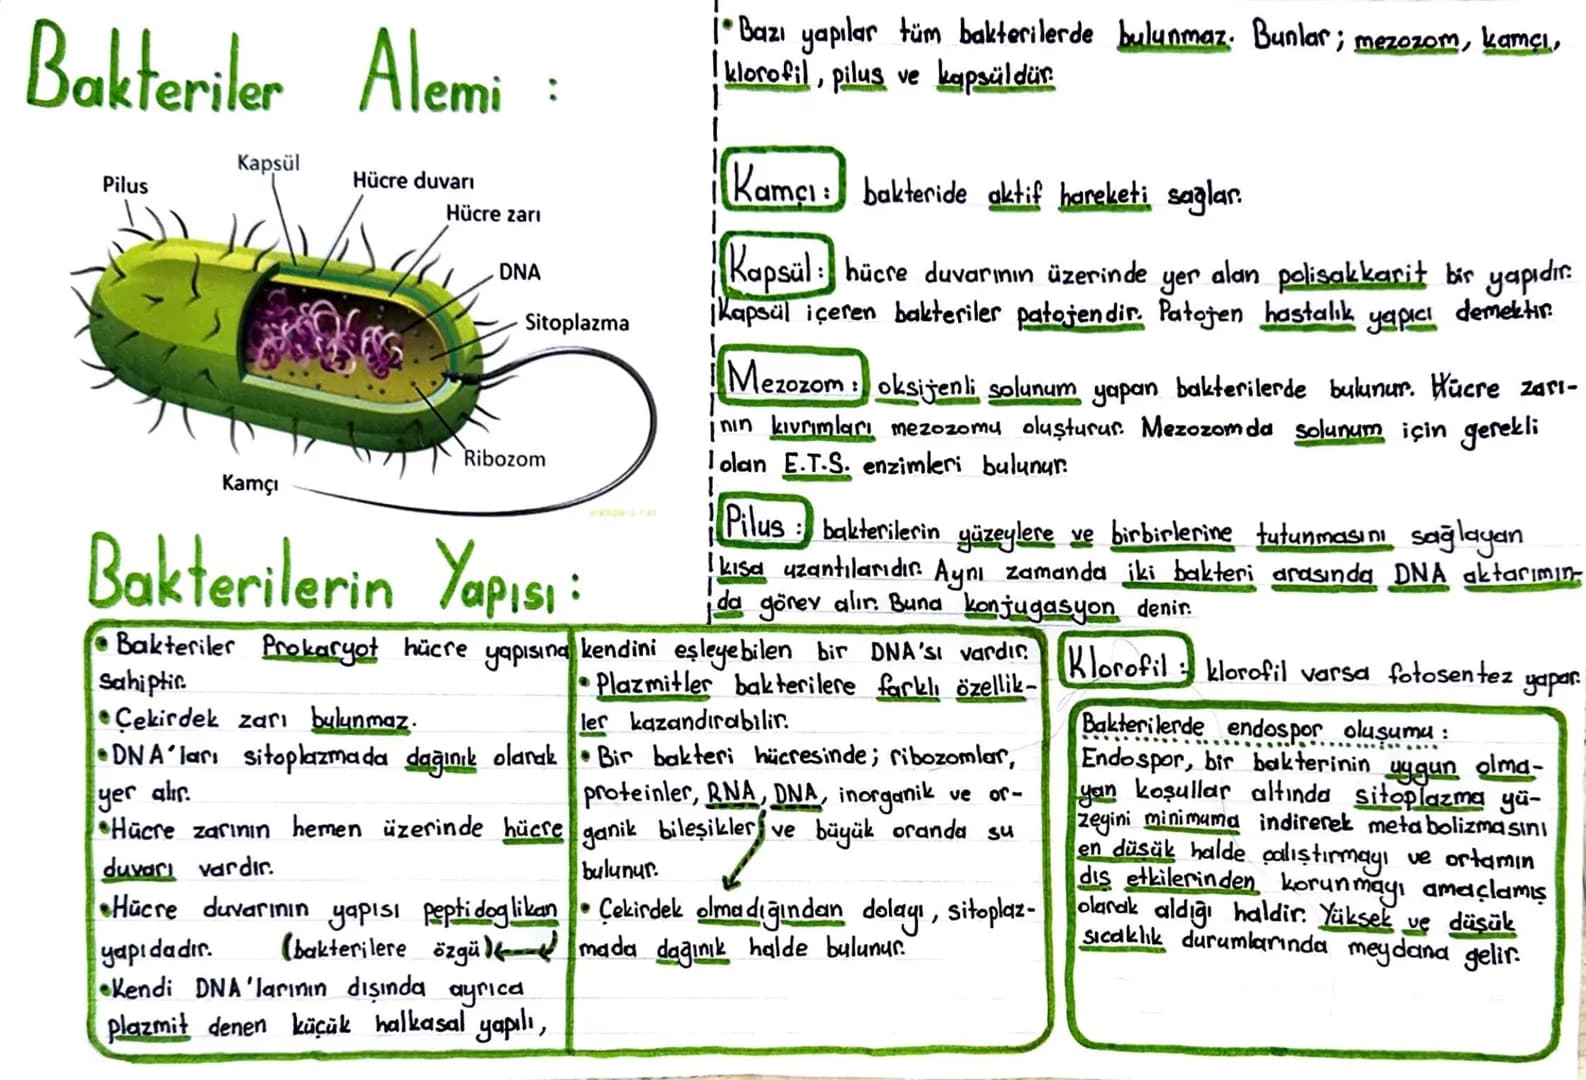 Bakteriler Alemi :
Pilus
Kapsül
Hücre duvarı
Hücre zarı
DNA
Sitoplazma
Ribozom
Kamçı
Bakterilerin Yapısı :
• Bakteriler Prokaryot hücre yapısına
sahiptir.
• Çekirdek zarı bulunmaz.
• DNA'ları sitoplazmada dağınık olarak
yer alır.
• Hücre zarının hemen üzerinde hücre
duvarı vardır.
• Hücre duvarının yapısı peptidoglikan
yapıdadır. (bakterilere özgü)
• Kendi DNA'larının dışında ayrıca
plazmit denen küçük halkasal yapılı,
kendini eşleyebilen bir DNA'sı vardır.
• Plazmitler bakterilere farklı özellik-
ler kazandırabilir.
• Bir bakteri hücresinde; ribozomlar,
proteinler, RNA, DNA, inorganik ve or-
ganik bileşikler ve büyük oranda su
bulunur.
• Çekirdek olmadığından dolayı, sitoplaz-
mada dağınık halde bulunur.
• Bazı yapılar tüm bakterilerde bulunmaz. Bunlar; mezozom, kamçı,
klorofil, pilus ve kapsüldür.
Kamçı: bakteride aktif hareketi sağlar.
Kapsül: hücre duvarının üzerinde yer alan polisakkarit bir yapıdır.
Kapsül içeren bakteriler patojendir. Patojen hastalık yapıcı demektir.
Mezozom: oksijenli solunum yapan bakterilerde bulunur. Hücre zarı-
nın kıvrımları mezozomu oluşturur. Mezozomda solunum için gerekli
olan E.T.S. enzimleri bulunur.
Pilus: bakterilerin yüzeylere ve birbirlerine tutunmasını sağlayan
kısa uzantılarıdır. Aynı zamanda iki bakteri arasında DNA aktarımın-
da görev alır. Buna konjugasyon denir.
Klorofil: klorofil varsa fotosentez yapar.
Bakterilerde endospor oluşumu :
Endospor, bir bakterinin uygun olma-
yan koşullar altında sitoplazma yü-
zeyini minimuma indirerek metabolizmasını
en düşük halde çalıştırmayı ve ortamın
dış etkilerinden korunmayı amaçlamış
olarak aldığı haldir. Yüksek ve düşük
sıcaklık durumlarında meydana gelir.